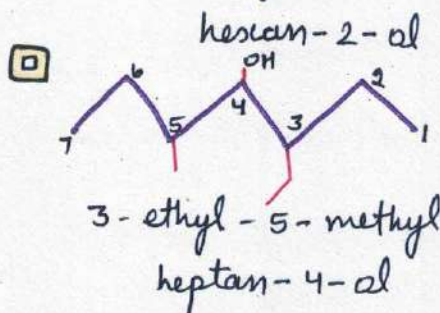 hexan-2-ol
OH
6
2
5
4
3
7
1
3-ethyl-5-methyl
heptan-4-ol